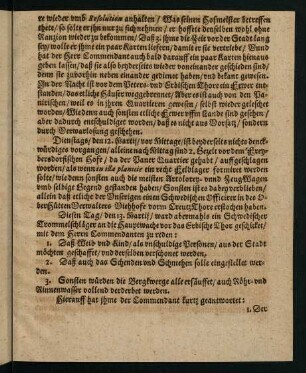 re wieder umb Resolution anhalten / Was seinen Hofmeister betreffen
thete / so solte er ihn nur zu sich nehmen / er hoffete denselben wohl ohne
Ranzion wieder zu bekommen / Daß 2. ihme die Zeit vor der Stadt lang
sey / wolle er ihme ein paar Karten liefern / damit er sie vertriebe / Wund
hat der Herr Commendant auch bald darauff ein paar Karten hinaus
geben lassen / daß sie also beyderseits wieder voneinander geschieden sind /
denn sie zuvorhin neben einander gedienet haben / und bekant gewesen.
In der Nacht ist vor dem Peters- und Erbischen Thore ein Fewer ent-
standen / das etliche Häuser weggebrennet / Aber es ist auch von den Pa-
nitrischen / weil es in ihren Quartieren gewesen / selbst wieder geleschet
worden / Wie denn auch sonsten etliche Fewer uffm Lande sind gesehen /
aber dabey verkundschaffet worden / daß es nicht aus Vorsatz / sondern
durch Verwarlosung geschehen.
Dienstags / den 12. Martij / vor Mittage / ist beyderseits nichts denck-
würdiges vorgangen / allein nach Mittag sind 2. Gezelt vor dem Frey-
bersdorffischen Hofe / da der Paner Quartier gehabt / auffgeschlagen
worden / als wenn in illa planitie ein recht Feldlager formiret werden
solte / wiedenn sonsten auch die meisten Artolerey- und Zeug Wagen
umb selbige Gegend gestanden haben / Sonsten ist es dabey verblieben /
allein daß etliche der Unserigen einen Schwedischen Officirer in des O-
berHüttenVerwalters Viehhofe vorm CreutzThor erstochen haben.
Diesen Tag / den 13. Martij / ward abermahls ein Schwedischer
Trommelschläger an die Hauptwache vor das Erbische Thor geschicket /
mit dem Herrn Commendanten zu reden:
1. Daß Weib und Kind / als unschuldige Personen / aus der Stadt
möchten geschaffet / und derselben verschonet werden.
2. Daß auch das Schenden und Schmehen solle eingestellet wer-
den.
3. Sonsten würden die Bergkwerge alle ersäuffet / auch Röhr- und
Rinnenwasser vollend verderbet werden.
Hierauff hat ihme der Commendant kurtz geantwortet:
1. Der